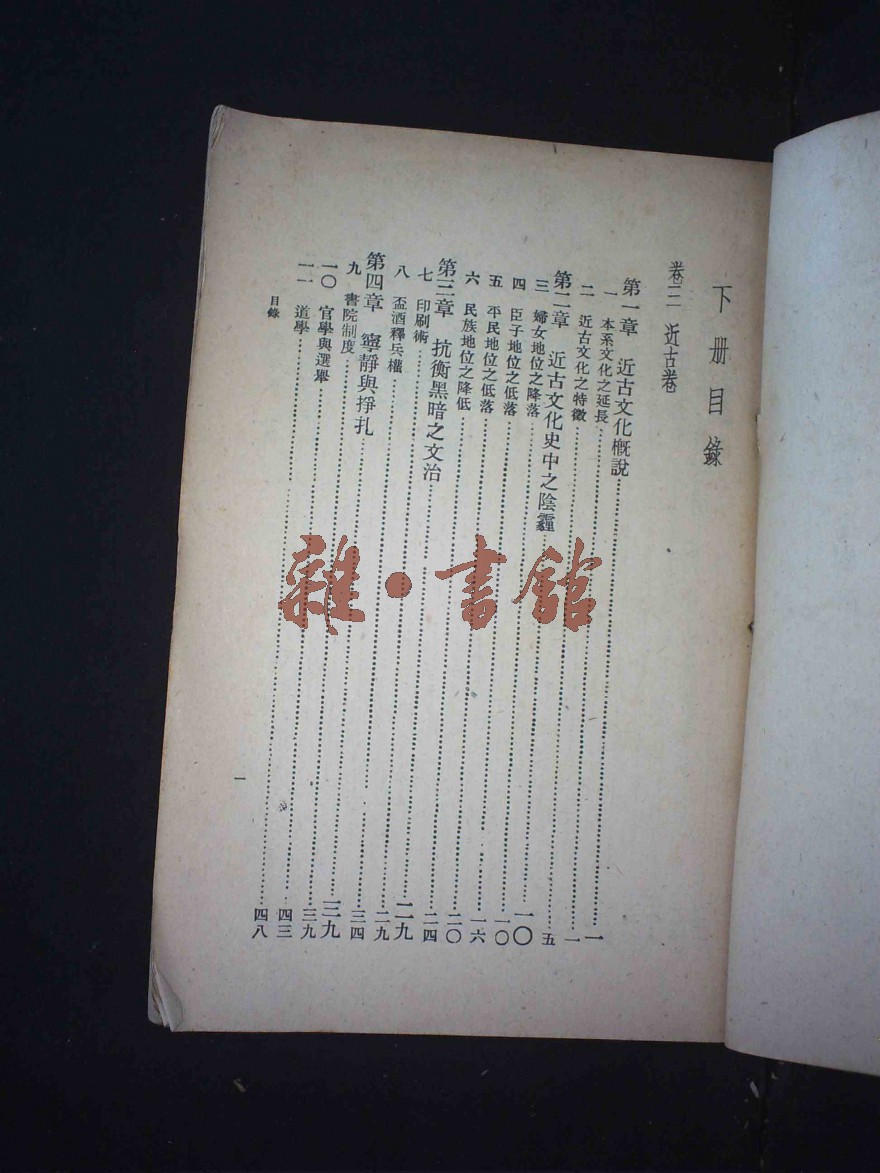 下册目錄
卷三 近古卷
第一章 近古文化概說……一
一 本系文化之延長……一
二 近古文化之特徵……五
第二章 近古文化史中之陰霾……一〇
三 婦女地位之降落……一〇
四 臣子地位之低落……一六
五 平民地位之低落……二〇
六 民族地位之降低……二四
第三章 抗衡黑暗之文治……二九
七 印刷術……二九
八 盃酒釋兵權……三四
第四章 寧靜與掙扎……三九
九 書院制度……三九
一〇 官學與選舉……四三
一一 道學……四八
目錄
一
雜·書館